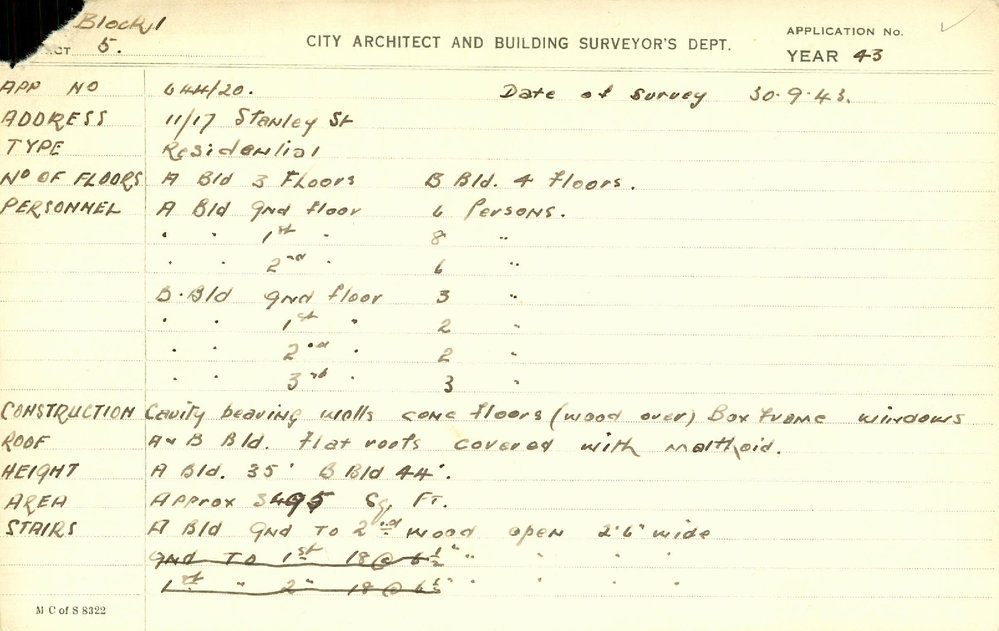 Block 1
CT 5.
CITY ARCHITECT AND BUILDING SURVEYOR'S DEPT.
APPLICATION No.
YEAR 43
APP NO 644/20. Date of survey 30.9.43.
ADDRESS 11/17 Stanley St
TYPE Residential
NO OF FLOORS A Bld 3 Floors B Bld. 4 floors.
PERSONNEL A Bld gnd floor 6 Persons.
" " 1st " 8 "
" " 2nd " 6 "
B. Bld gnd floor 3 "
" " 1st " 2 "
" " 2nd " 2 "
" " 3rd " 3 "
CONSTRUCTION Cavity bearing walls conc floors (wood over) Box frame windows
ROOF A & B Bld. flat roofs covered with malthoid.
HEIGHT A Bld. 35' B Bld 44'.
AREA Approx 3495 Sq. Ft.
STAIRS A Bld Gnd To 2nd wood open 2'6" wide
Gnd To 1st 18 @ 6½" " " " "
1st " 2" 18 @ 6½" " " " "
M C of S 8322